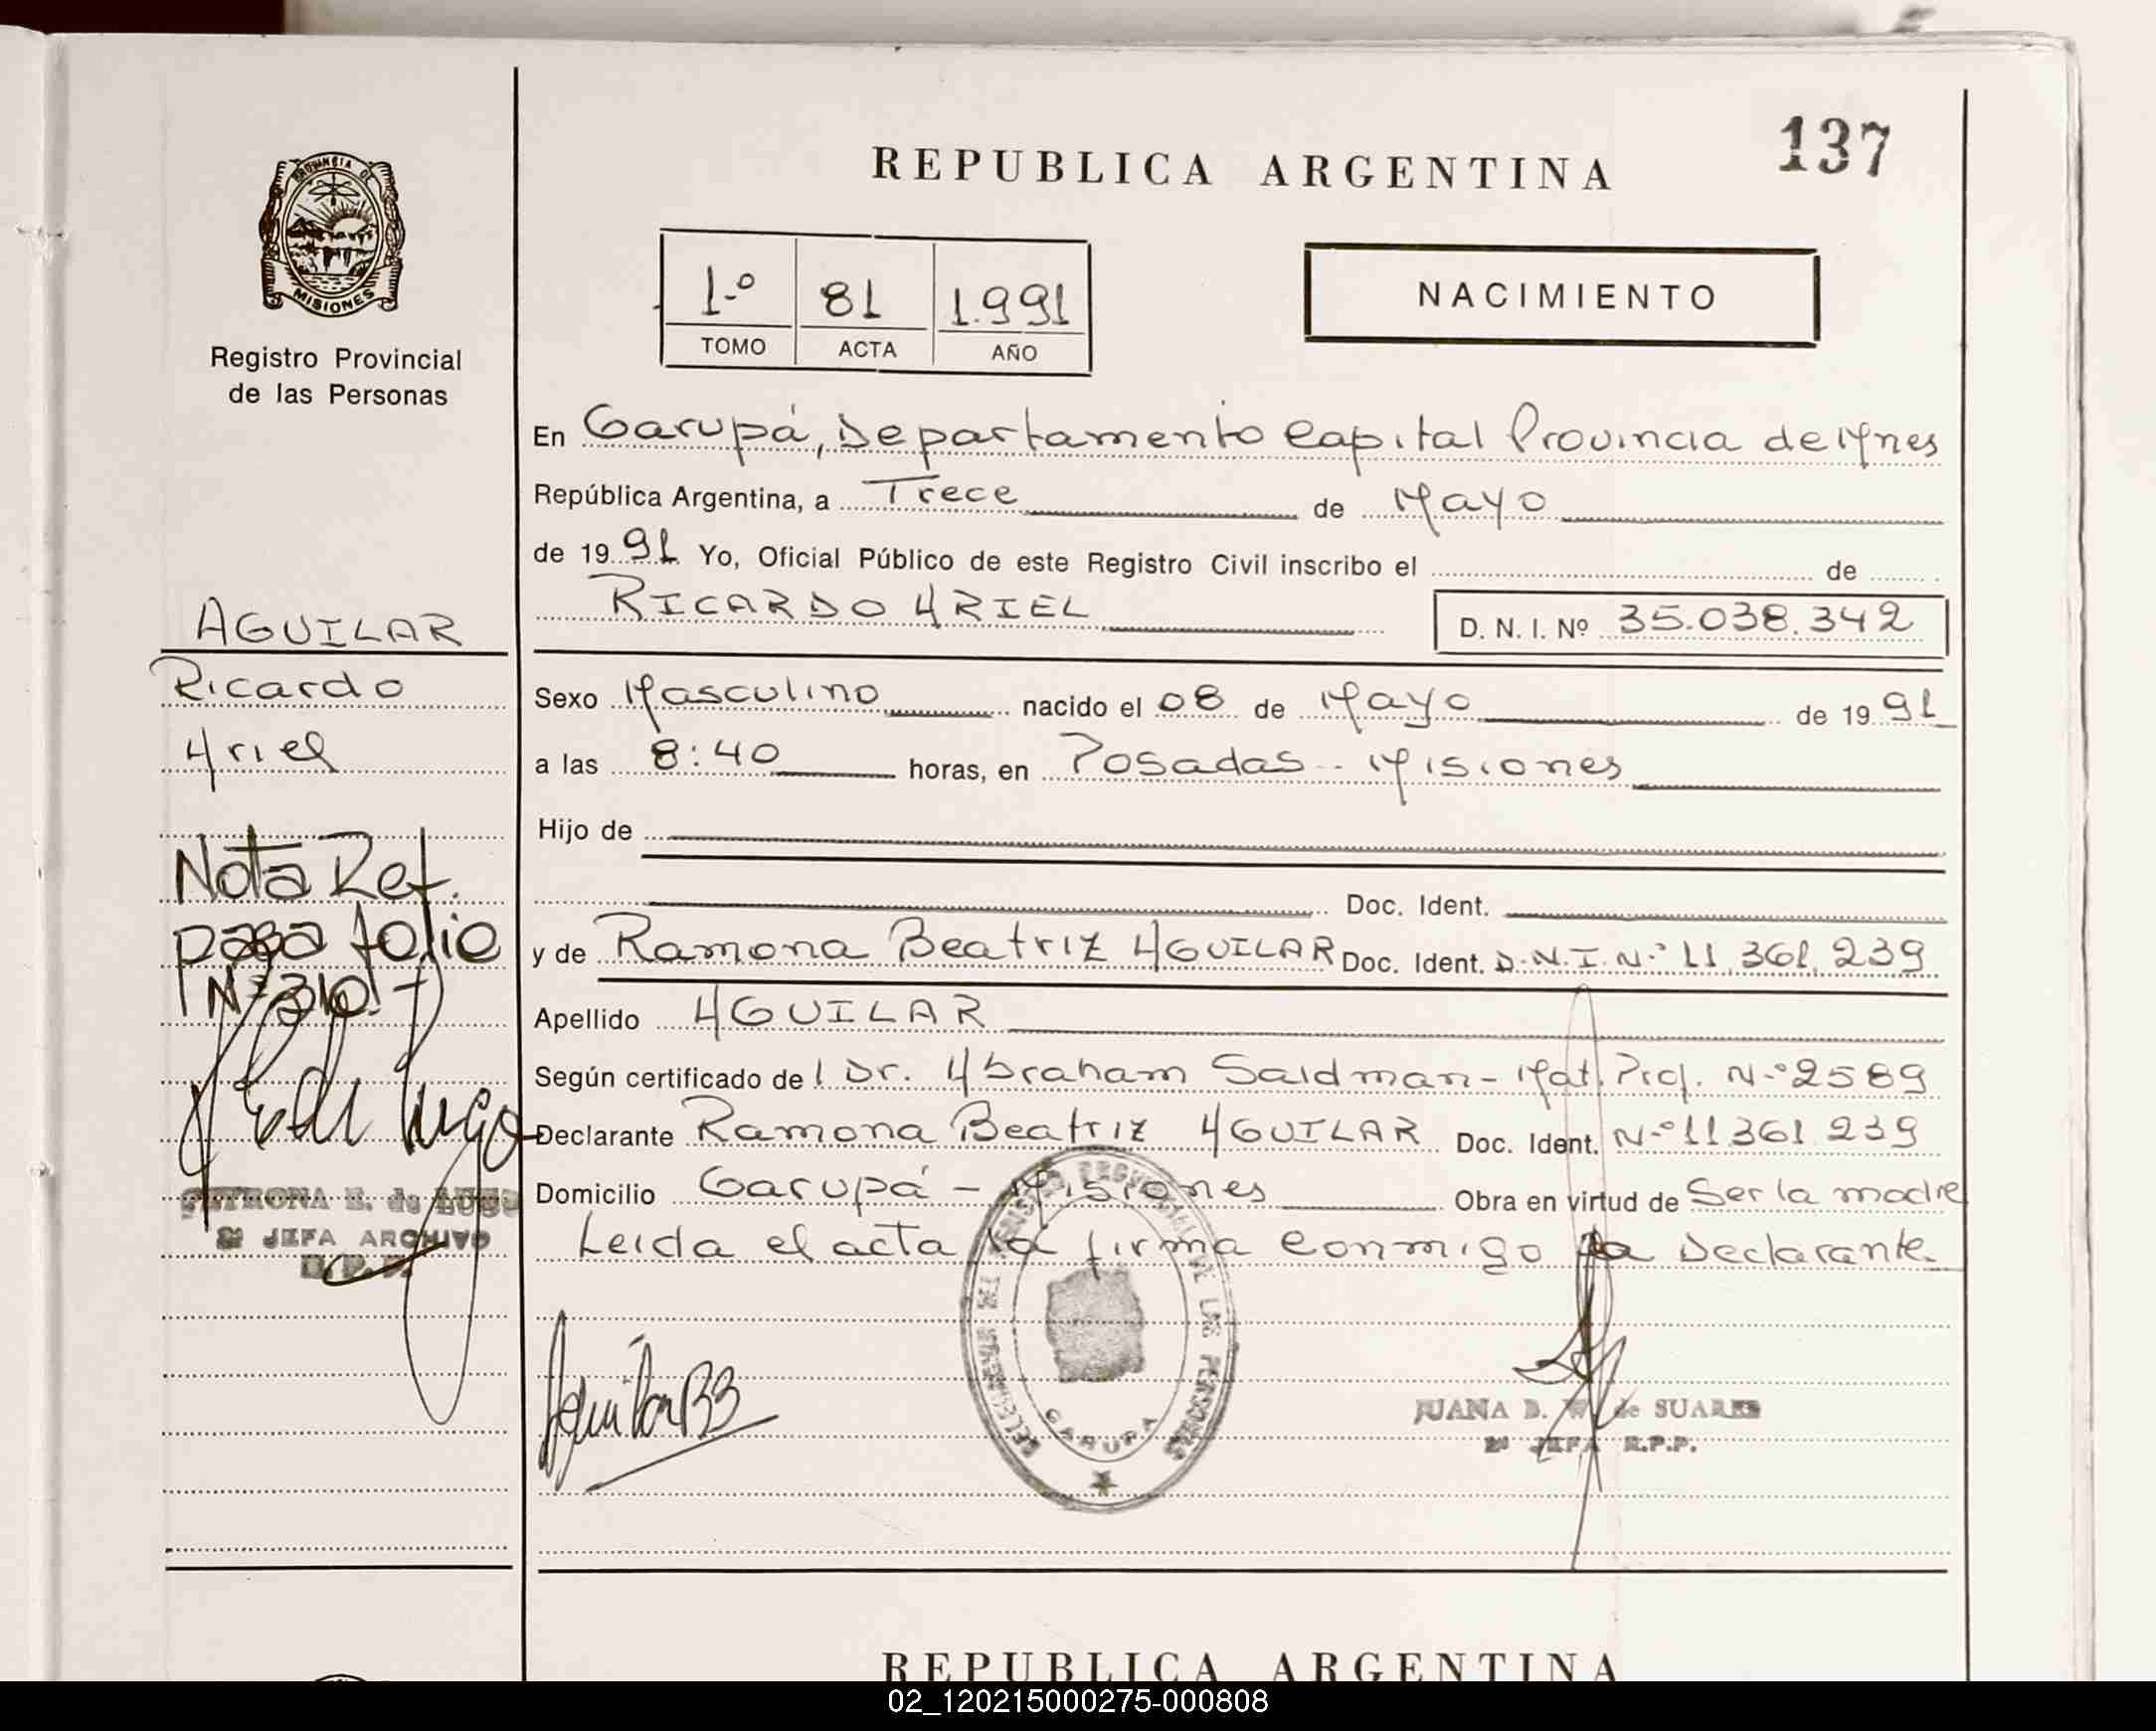 137
REPUBLICA ARGENTINA
PROVINCIA DE
MISIONES
Registro Provincial
de las Personas
1-º 81 1.991
TOMO ACTA AÑO
NACIMIENTO
En Garupá, Departamento Capital Provincia de Mnes
República Argentina, a Trece de Mayo
de 1991 Yo, Oficial Público de este Registro Civil inscribo el de
RICARDO ARIEL D. N. I. Nº 35.038.342
AGUILAR
Ricardo
Ariel
Sexo Masculino nacido el 08 de Mayo de 1991
a las 8:40 horas, en Posadas - Misiones
Hijo de
Doc. Ident.
y de Ramona Beatriz AGUILAR Doc. Ident. D.N.I.N-º 11.361.239
Apellido AGUILAR
Según certificado del Dr. Abraham Saidman - Mat. Prof. N-º 2589
Declarante Ramona Beatriz AGUILAR Doc. Ident. N-º 11.361.239
Domicilio Garupá - Misiones Obra en virtud de Ser la madre
Leida el acta la firma conmigo la Declarante
Nota Ref.
pasa folio
Nº 310
PETRONA E. de LUGO
2ª JEFA ARCHIVO
R.P.P.
Aguilar RB
GARUPA
JUANA D. W. de SUAREZ
2ª JEFA R.P.P.
REPUBLICA ARGENTINA
02_120215000275-000808